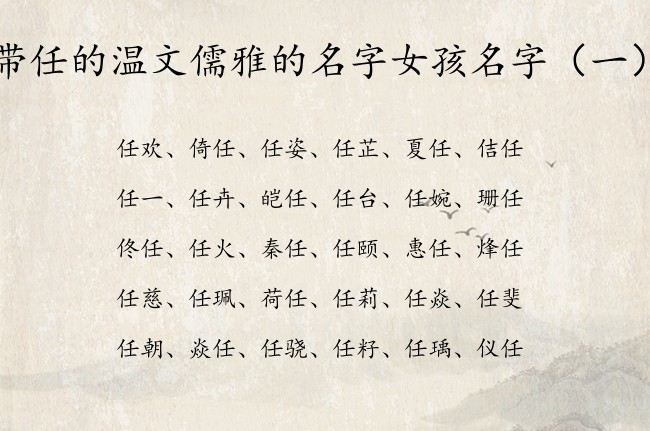 带任的温文儒雅的名字女孩名字（一）
任欢、倚任、任姿、任芷、夏任、佶任
任一、任卉、皑任、任台、任婉、珊任
佟任、任火、秦任、任颐、惠任、烽任
任慈、任珮、荷任、任莉、任焱、任斐
任朝、焱任、任骁、任籽、任瑀、仪任